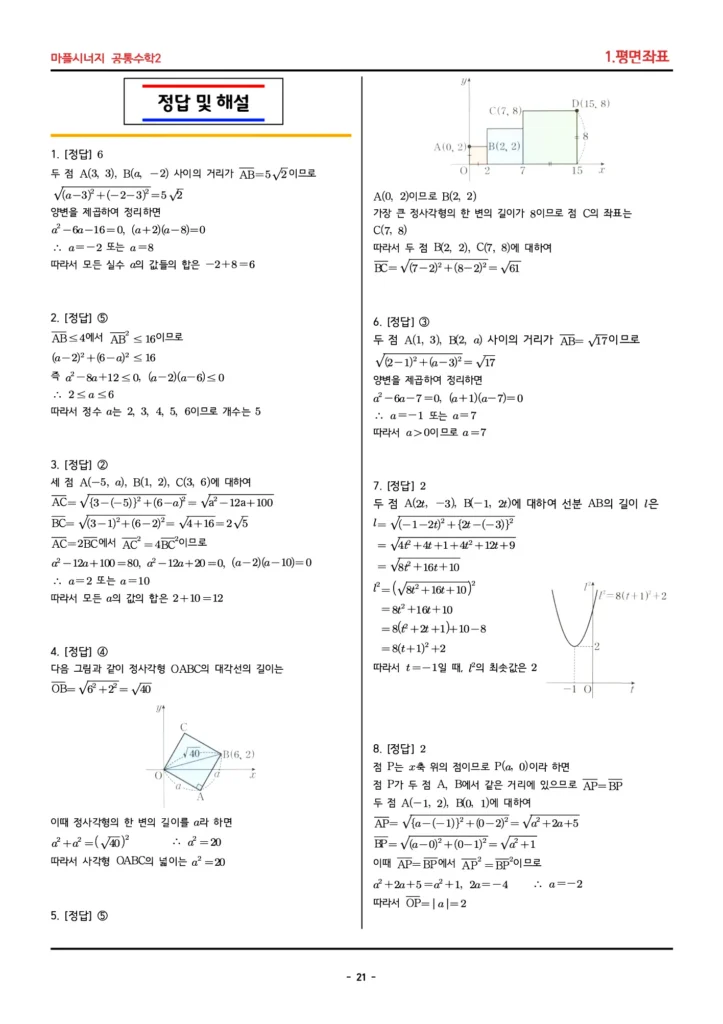 마플시너지 공통수학2
1.평면좌표
정답 및 해설
1. [정답] 6
두 점 A(3, 3), B(a, −2) 사이의 거리가 AB̅=5√2이므로
√((a−3)²+(−2−3)²)=5√2
양변을 제곱하여 정리하면
a²−6a−16=0, (a+2)(a−8)=0
∴ a=−2 또는 a=8
따라서 모든 실수 a의 값들의 합은 −2+8=6
2. [정답] ⑤
AB̅≤4에서 AB̅²≤16이므로
(a−2)²+(6−a)²≤16
즉 a²−8a+12≤0, (a−2)(a−6)≤0
∴ 2≤a≤6
따라서 정수 a는 2, 3, 4, 5, 6이므로 개수는 5
3. [정답] ②
세 점 A(−5, a), B(1, 2), C(3, 6)에 대하여
AC̅=√({3−(−5)}²+(6−a)²)=√(a²−12a+100)
BC̅=√((3−1)²+(6−2)²)=√(4+16)=2√5
AC̅=2BC̅에서 AC̅²=4BC̅²이므로
a²−12a+100=80, a²−12a+20=0, (a−2)(a−10)=0
∴ a=2 또는 a=10
따라서 모든 a의 값의 합은 2+10=12
4. [정답] ④
다음 그림과 같이 정사각형 OABC의 대각선의 길이는
OB̅=√(6²+2²)=√40
y
C
√40
B(6, 2)
O
a
a
x
A
이때 정사각형의 한 변의 길이를 a라 하면
a²+a²=(√40)² ∴ a²=20
따라서 사각형 OABC의 넓이는 a²=20
5. [정답] ⑤
y
C(7, 8)
D(15, 8)
8
A(0, 2)
B(2, 2)
O 2 7 15 x
A(0, 2)이므로 B(2, 2)
가장 큰 정사각형의 한 변의 길이가 8이므로 점 C의 좌표는
C(7, 8)
따라서 두 점 B(2, 2), C(7, 8)에 대하여
BC̅=√((7−2)²+(8−2)²)=√61
6. [정답] ③
두 점 A(1, 3), B(2, a) 사이의 거리가 AB̅=√17이므로
√((2−1)²+(a−3)²)=√17
양변을 제곱하여 정리하면
a²−6a−7=0, (a+1)(a−7)=0
∴ a=−1 또는 a=7
따라서 a>0이므로 a=7
7. [정답] 2
두 점 A(2t, −3), B(−1, 2t)에 대하여 선분 AB의 길이 l은
l=√((−1−2t)²+{2t−(−3)}²)
=√(4t²+4t+1+4t²+12t+9)
=√(8t²+16t+10)
l²=(√(8t²+16t+10))²
=8t²+16t+10
=8(t²+2t+1)+10−8
=8(t+1)²+2
따라서 t=−1일 때, l²의 최솟값은 2
l²
l²=8(t+1)²+2
2
−1 O t
8. [정답] 2
점 P는 x축 위의 점이므로 P(a, 0)이라 하면
점 P가 두 점 A, B에서 같은 거리에 있으므로 AP̅=BP̅
두 점 A(−1, 2), B(0, 1)에 대하여
AP̅=√({a−(−1)}²+(0−2)²)=√(a²+2a+5)
BP̅=√((a−0)²+(0−1)²)=√(a²+1)
이때 AP̅=BP̅에서 AP̅²=BP̅²이므로
a²+2a+5=a²+1, 2a=−4 ∴ a=−2
따라서 OP̅=|a|=2
- 21 -